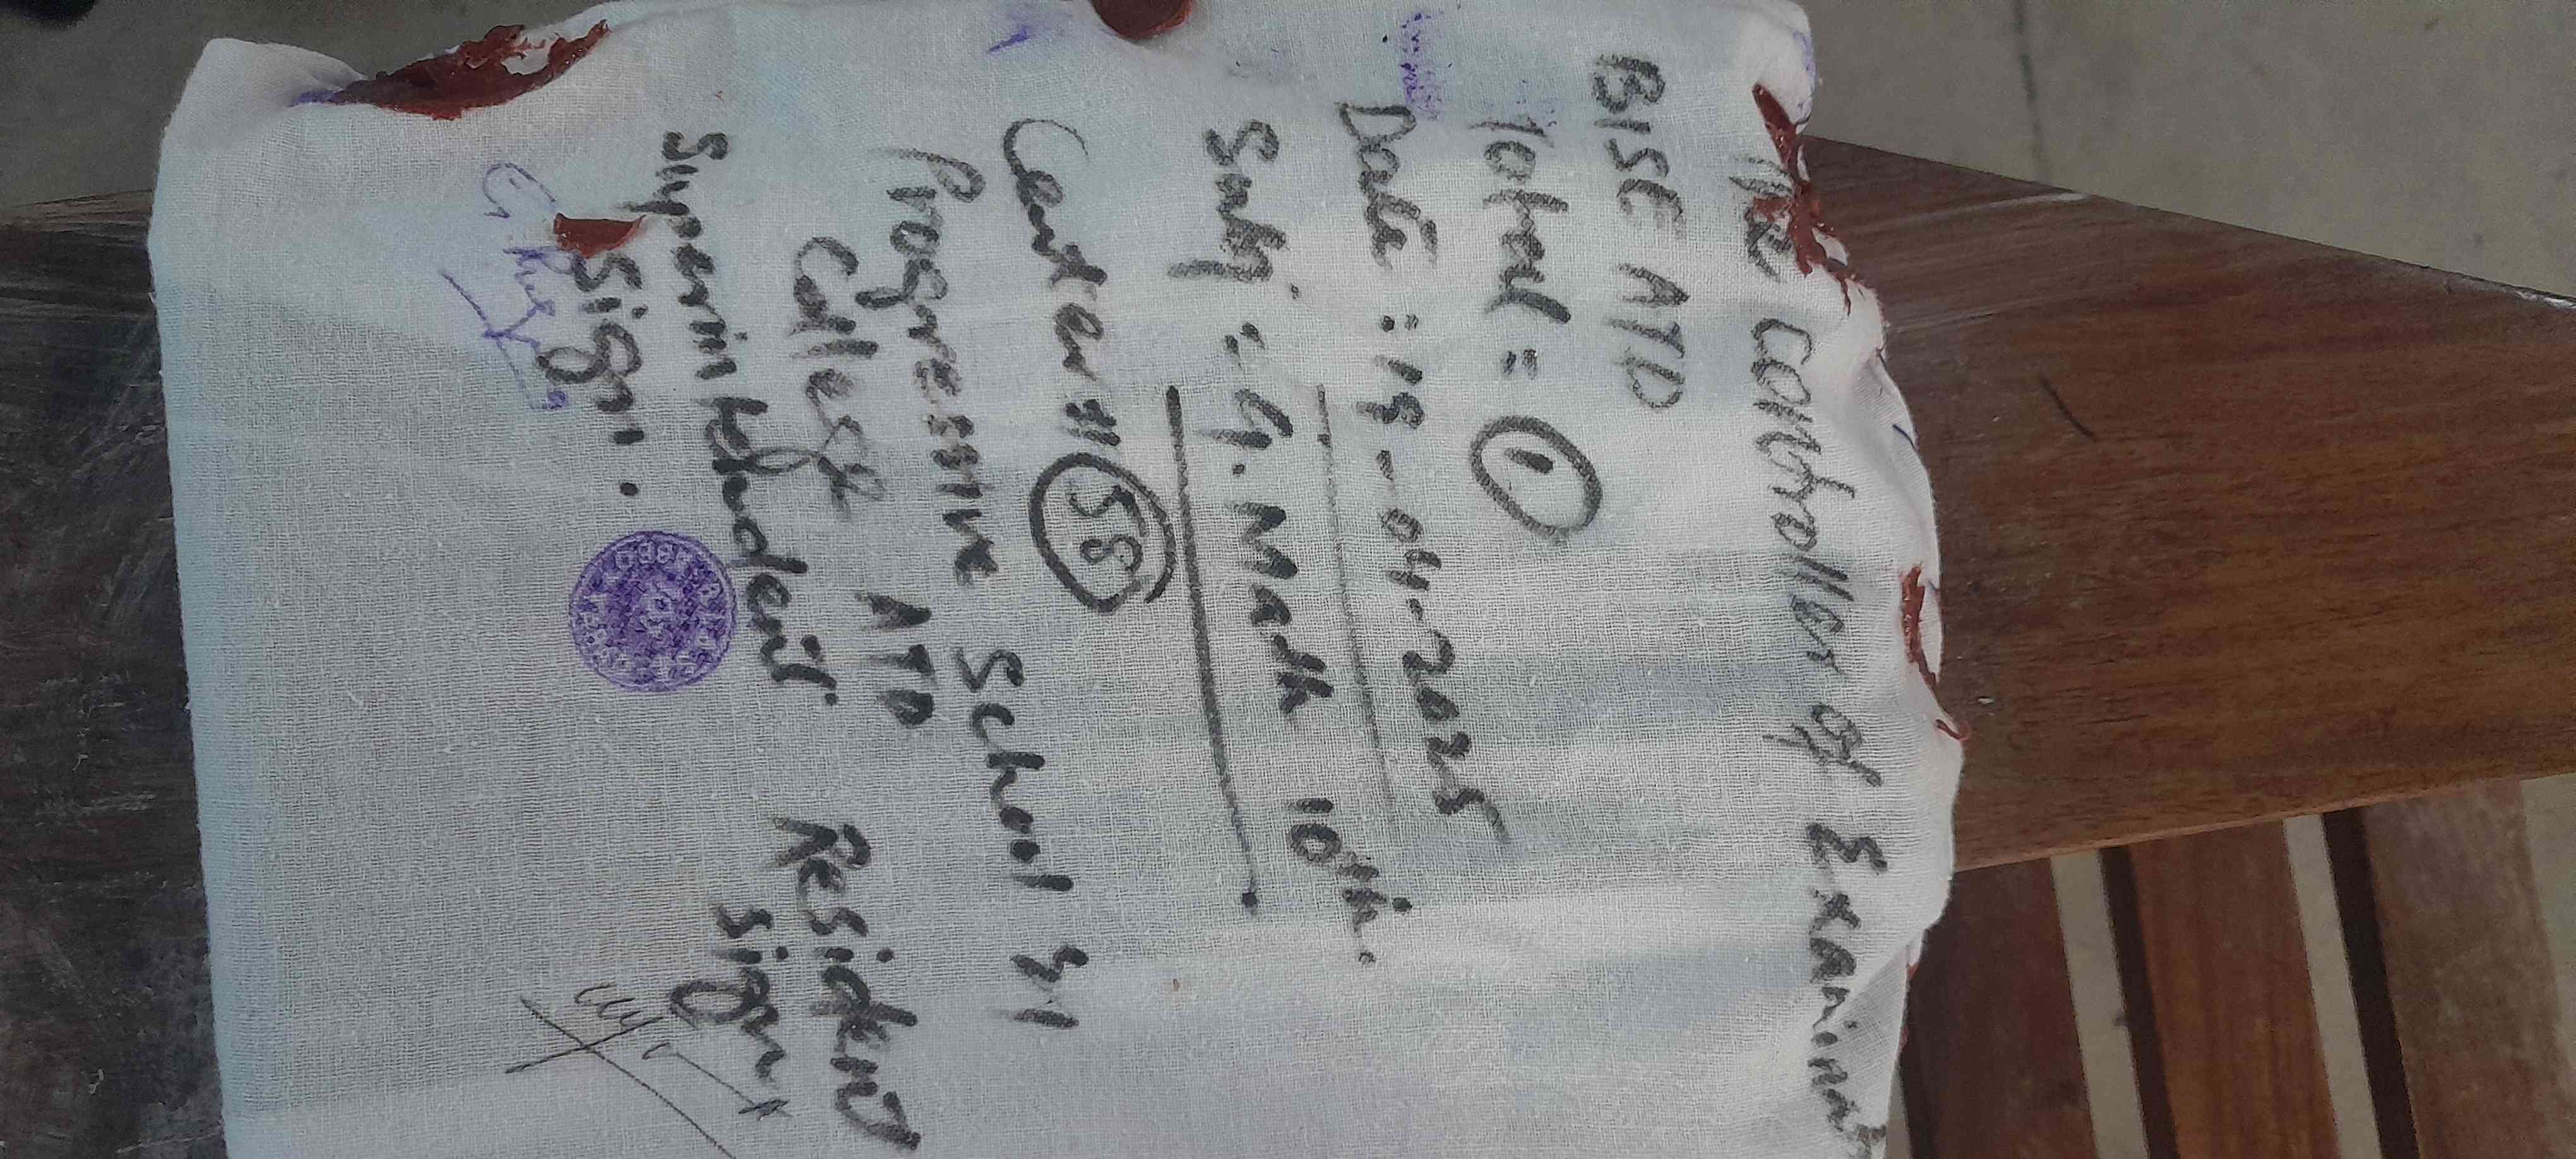 The Controller of Examinat
BISE ATD
Total = 1
Date : 19-04-2025
Subj : G. Math 10th.
Center # 58
Progressive School &
College ATD
Superintendent Resident
Sign. Sign